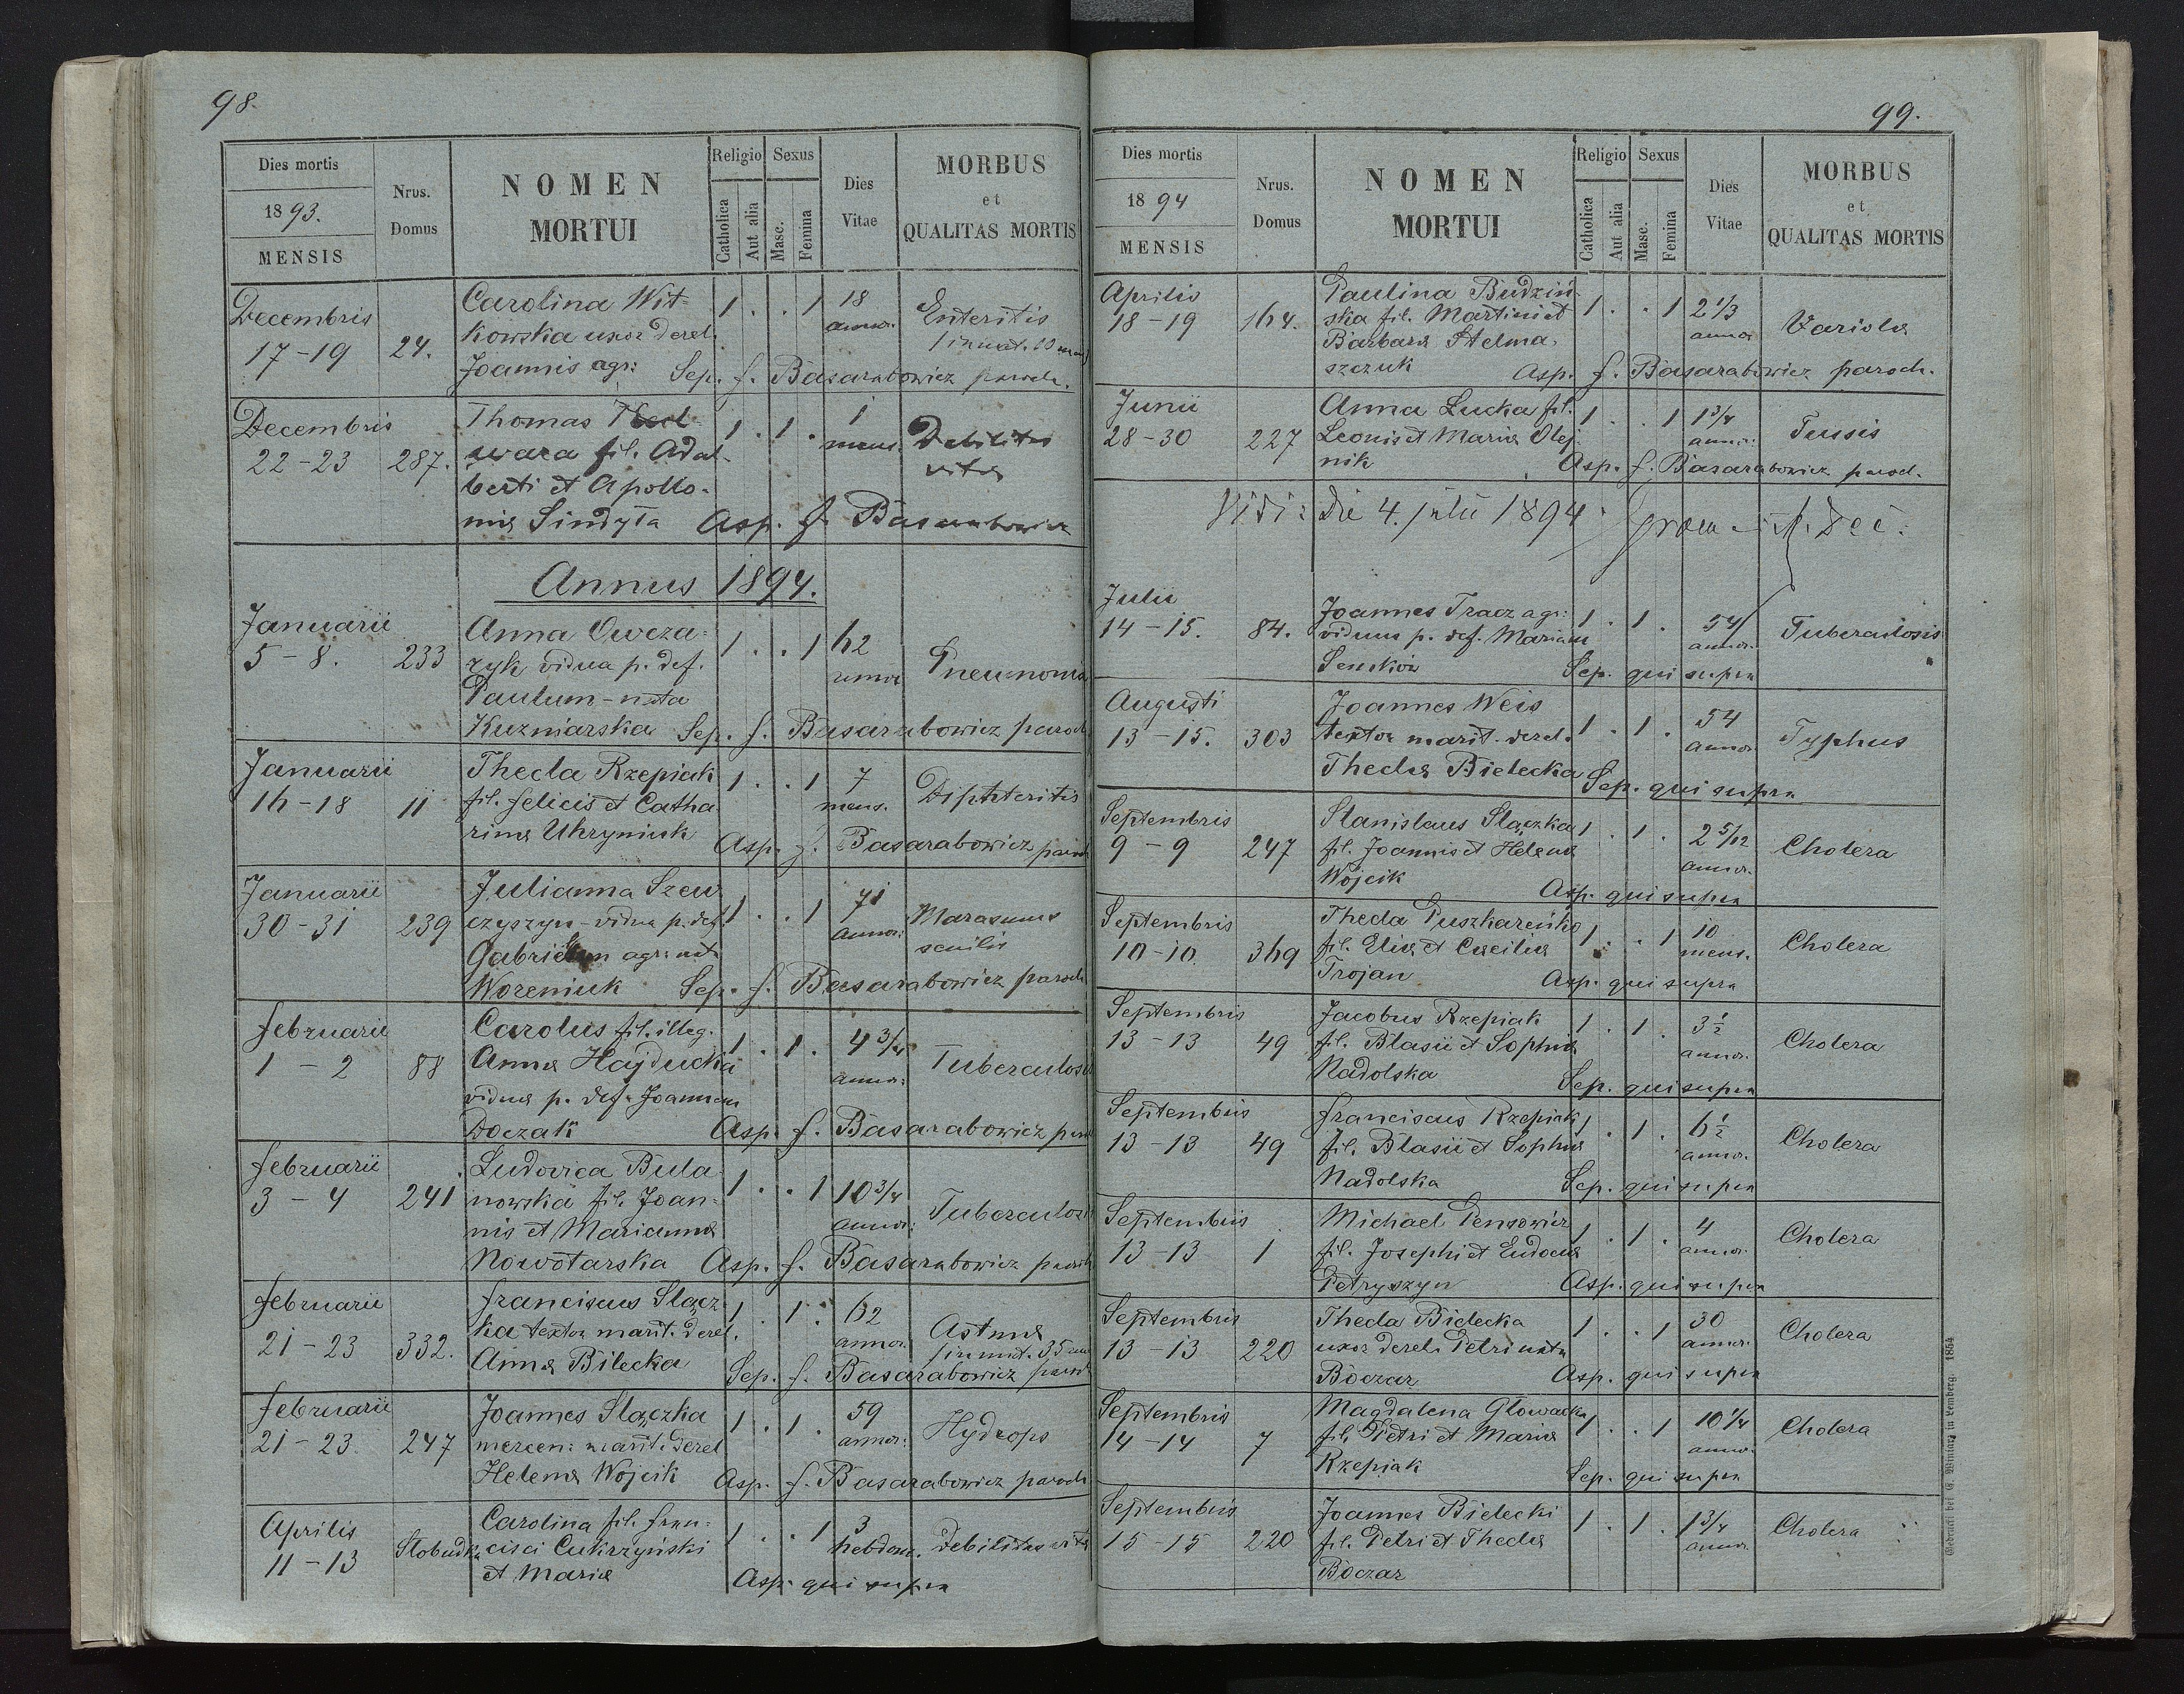 98.
Dies mortis
1893.
MENSIS
Nrus.
Domus
NOMEN
MORTUI
Religio
Catholica
Aut alia
Sexus
Masc.
Femina
Dies
Vitae
MORBUS
et
QUALITAS MORTIS
Decembris
17-19
24.
Carolina Wit-
kowska uxor derel.
Joannis agr:
1 . . 1
18
annor.
Enteritis
Sep. f. Basarabowicz paroch.
Decembris
22-23
287.
Thomas
wara fil. Adal-
berti et Apollo-
niæ Sindyła
1 . 1 .
1
mens.
Debilitas
vitæ
Asp. f. Basarabowicz
Annus 1894.
Januarii
5-8.
233
Anna Owcza-
ryk vidua p. def.
Paulum - nata
Kuzniarska
1 . . 1
62
annor
Pneumonia
Sep. f. Basarabowicz paroch
Januarii
16-18
11
Thecla Rzepiak
fil. Felicis et Catha-
rinæ Uhryniuk
1 . . 1
7
mens.
Diphteritis
Asp. f. Basarabowicz paroch
Januarii
30-31
239
Julianna Szew
czyszyn - vidua p. def.
Gabrielem agr: nat.
Woreniuk
1 . . 1
71
annor:
Marasmus
senilis
Sep. f. Basarabowicz paroch
Februarii
1 - 2
88
Carolus fil. illeg.
Annæ Hajducka
viduæ p. def. Joannem
Doczak
1 . 1 .
4 3/4
annor:
Tuberculosis
Asp. f. Basarabowicz paroch
Februarii
3 - 4
241
Ludovica Bula
nowska fil. Joan-
nis et Mariannæ
Nowotarska
1 . . 1
10 3/4
annor:
Tuberculosis
Asp. f. Basarabowicz paroch
Februarii
21-23
332.
Franciscus Slącz-
ka textor marit. derel.
Annæ Bilecka
1 . 1 .
62
annor.
Astma
Sep. f. Basarabowicz paroch
Februarii
21-23.
247
Joannes Slączka
mercen: marit. derel
Helenæ Wojcik
1 . 1 .
59
annor:
Hydrops
Asp. f. Basarabowicz paroch
Aprilis
11-13
Slobudka
Carolina fil. Fran-
cisci Cukrzyński
et Mariæ
1 . . 1
3
hebdom.
Debilitas vitæ
Asp. qui supra
99.
Dies mortis
1894
MENSIS
Nrus.
Domus
NOMEN
MORTUI
Religio
Catholica
Aut alia
Sexus
Masc.
Femina
Dies
Vitae
MORBUS
et
QUALITAS MORTIS
Aprilis
18-19
164.
Paulina Budziń-
ska fil. Martini et
Barbaræ Stelma-
szczuk
1 . . 1
2 1/3
annor
Variola
Asp. f. Basarabowicz paroch.
Junii
28-30
227
Anna Lucka fil.
Leonis et Mariæ Olej-
nik
1 . . 1
1 3/4
annor:
Tussis
Asp. f. Basarabowicz paroch.
Vidi: die 4. julii 1894
Julii
14-15.
84.
Joannes Tracz agr:
viduus p. def. Mariam
1 . 1 .
54
annor.
Tuberculosis
Sep. qui supra
Augusti
13-15.
303
Joannes Weis
textor marit. derel.
Theclæ Bielecka
1 . 1 .
54
annor.
Typhus
Sep. qui supra
Septembris
9-9
247
Stanislaus Slączka
fil. Joannis et Helenæ
Wojcik
1 . 1 .
2 5/12
annor.
Cholera
Asp. qui supra
Septembris
10-10
369
Thecla Puszkareńko
fil. Eliæ et Cæciliæ
Trojan
1 . . 1
10
mens.
Cholera
Asp. qui supra
Septembris
13-13
49
Jacobus Rzepiak
fil. Blasii et Sophiæ
Nadolska
1 . 1 .
3 1/2
annor.
Cholera
Sep. qui supra
Septembris
13-13
49
Franciscus Rzepiak
fil. Blasii et Sophiæ
Nadolska
1 . 1 .
6 1/2
annor.
Cholera
Sep. qui supra
Septembris
13-13
1
Michael Pensowicz
fil. Josephi et Eudociæ
Petryszyn
1 . 1 .
4
annor.
Cholera
Asp. qui supra
Septembris
13-13
220
Thecla Bielecka
uxor derel. Petri nata
Boczar
1 . . 1
30
annor.
Cholera
Asp. qui supra
Septembris
14-14
7
Magdalena Głowacka
fil. Petri et Mariæ
Rzepiak
1 . . 1
10 1/4
annor.
Cholera
Sep. qui supra
Septembris
15-15
220
Joannes Bielecki
fil. Petri et Theclæ
Boczar
1 . 1 .
1 3/4
annor.
Cholera
Gedruckt bei E. Winiarz in Lemberg. 1854